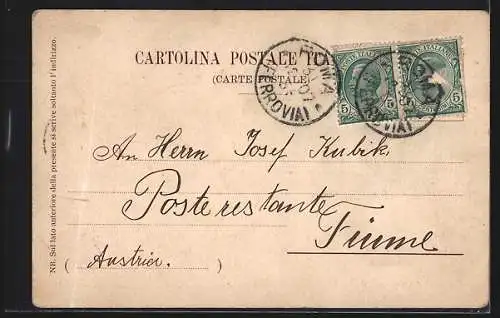 CARTOLINA POSTALE ITA
(CARTE POSTALE
ROMA
FERROVIA
POSTE ITALIANE
5
5
An Herrn Josef Kubik
Poste restante
Fiume
(Austria.)
NB. Sul lato anteriore della presente si scrive soltanto l'indirizzo.